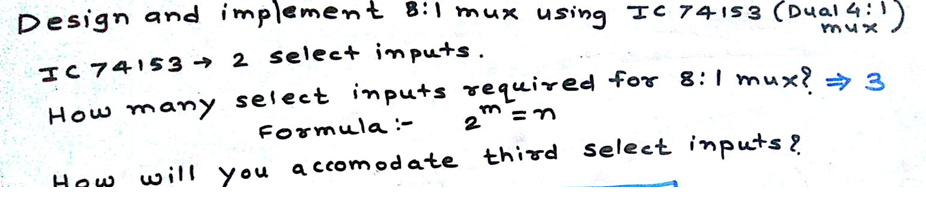 Design and implement 8:1 mux using IC 74153 (Dual 4:1 mux)
IC 74153 → 2 select inputs.
How many select inputs required for 8:1 mux? ⇒ 3
Formula :- 2^m = n
How will you accomodate third select inputs?